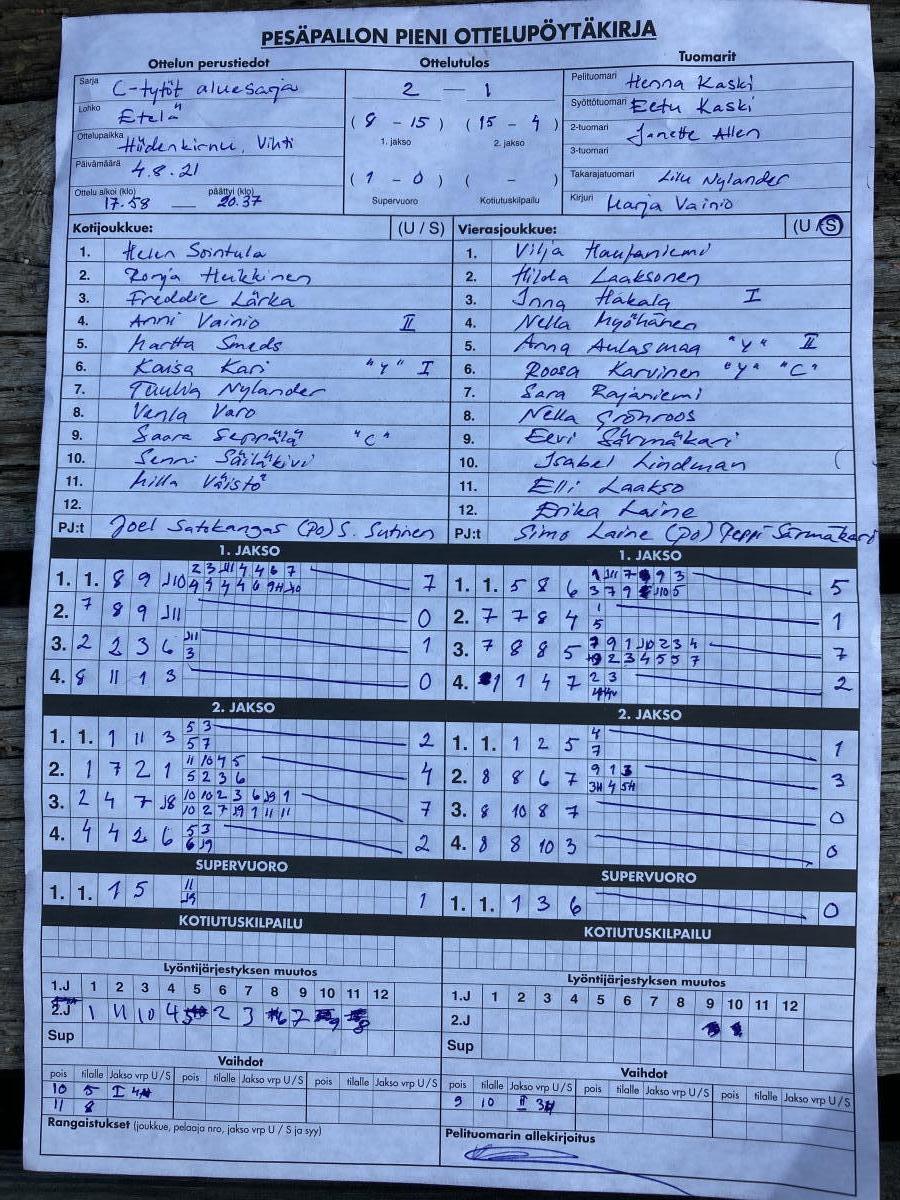 PESÄPALLON PIENI OTTELUPÖYTÄKIRJA
Ottelun perustiedot
Sarja C-tytöt aluesarja
Lohko Etelä
Ottelupaikka Hiidenkirnu, Vihti
Päivämäärä 4.8.21
Ottelu alkoi (klo) päättyi (klo)
17.58 — 20.37
Ottelutulos
2 — 1
(8 - 15) (15 - 4)
1. jakso 2. jakso
(1 - 0) ( - )
Supervuoro Kotiutuskilpailu
Tuomarit
Pelituomari Henna Kaski
Syöttötuomari Eetu Kaski
2-tuomari Janette Allen
3-tuomari
Takarajatuomari Lilu Nylander
Kirjuri Marja Vainio
Kotijoukkue: (U / S)
1. Helen Sointula
2. Ronja Heikkinen
3. Freddie Lärka
4. Anni Vainio II
5. Martta Smeds
6. Kaisa Kari "y" I
7. Tuulia Nylander
8. Venla Varo
9. Saara Seppälä "C"
10. Senni Säiläkivi
11. Milla Väistö
12.
PJ:t Joel Satokangas (PO) S. Sutinen
Vierasjoukkue: (U / S)
1. Vilja Hautaniemi
2. Hilda Laaksonen
3. Inna Hakala I
4. Nella Myöhänen
5. Anna Aulasmaa "y" II
6. Roosa Karvinen "y" "C"
7. Sara Rajaniemi
8. Nella Grönroos
9. Eevi Särmäkari
10. Isabel Lindman
11. Elli Laakso
12. Erika Laine
PJ:t Simo Laine (PO) Peppi Särmäkari
1. JAKSO
1. 1. 8 9 J10 2 3 J11 4 4 6 7 7
2. 7 8 9 J11 0
3. 2 2 3 6 J11 1
3
4. 8 11 1 3 0
2. JAKSO
1. 1. 1 11 3 5 3 2
5 7
2. 1 7 2 1 11 10 4 5 4
5 2 3 6
3. 2 4 7 J8 10 10 2 3 6 J9 1 7
10 2 7 J9 1 11 11
4. 4 4 2 6 5 3 2
6 J9
SUPERVUORO
1. 1. 1 5 11 1
J9
KOTIUTUSKILPAILU
Lyöntijärjestyksen muutos
1.J 1 2 3 4 5 6 7 8 9 10 11 12
2.J 1 11 10 4 5 2 3 6 7 9 8
Sup
Vaihdot
pois tilalle Jakso vrp U / S pois tilalle Jakso vrp U / S pois tilalle Jakso vrp U / S
10 5 I 4
11 8
Rangaistukset (joukkue, pelaaja nro, jakso vrp U / S ja syy)
1. JAKSO
1. 1. 5 8 6 5
2. 7 7 8 4 1 1
5
3. 7 8 8 5 7 9 1 J10 2 3 4 7
2 3 4 5 5 7
4. 1 1 4 7 2 3 2
2. JAKSO
1. 1. 1 2 5 4 1
7
2. 8 8 6 7 9 1 3 3
3H 4 5H
3. 8 10 8 7 0
4. 8 8 10 3 0
SUPERVUORO
1. 1. 1 3 6 0
KOTIUTUSKILPAILU
Lyöntijärjestyksen muutos
1.J 1 2 3 4 5 6 7 8 9 10 11 12
2.J
Sup
Vaihdot
pois tilalle Jakso vrp U / S pois tilalle Jakso vrp U / S pois tilalle Jakso vrp U / S
9 10 II 3
Pelituomarin allekirjoitus